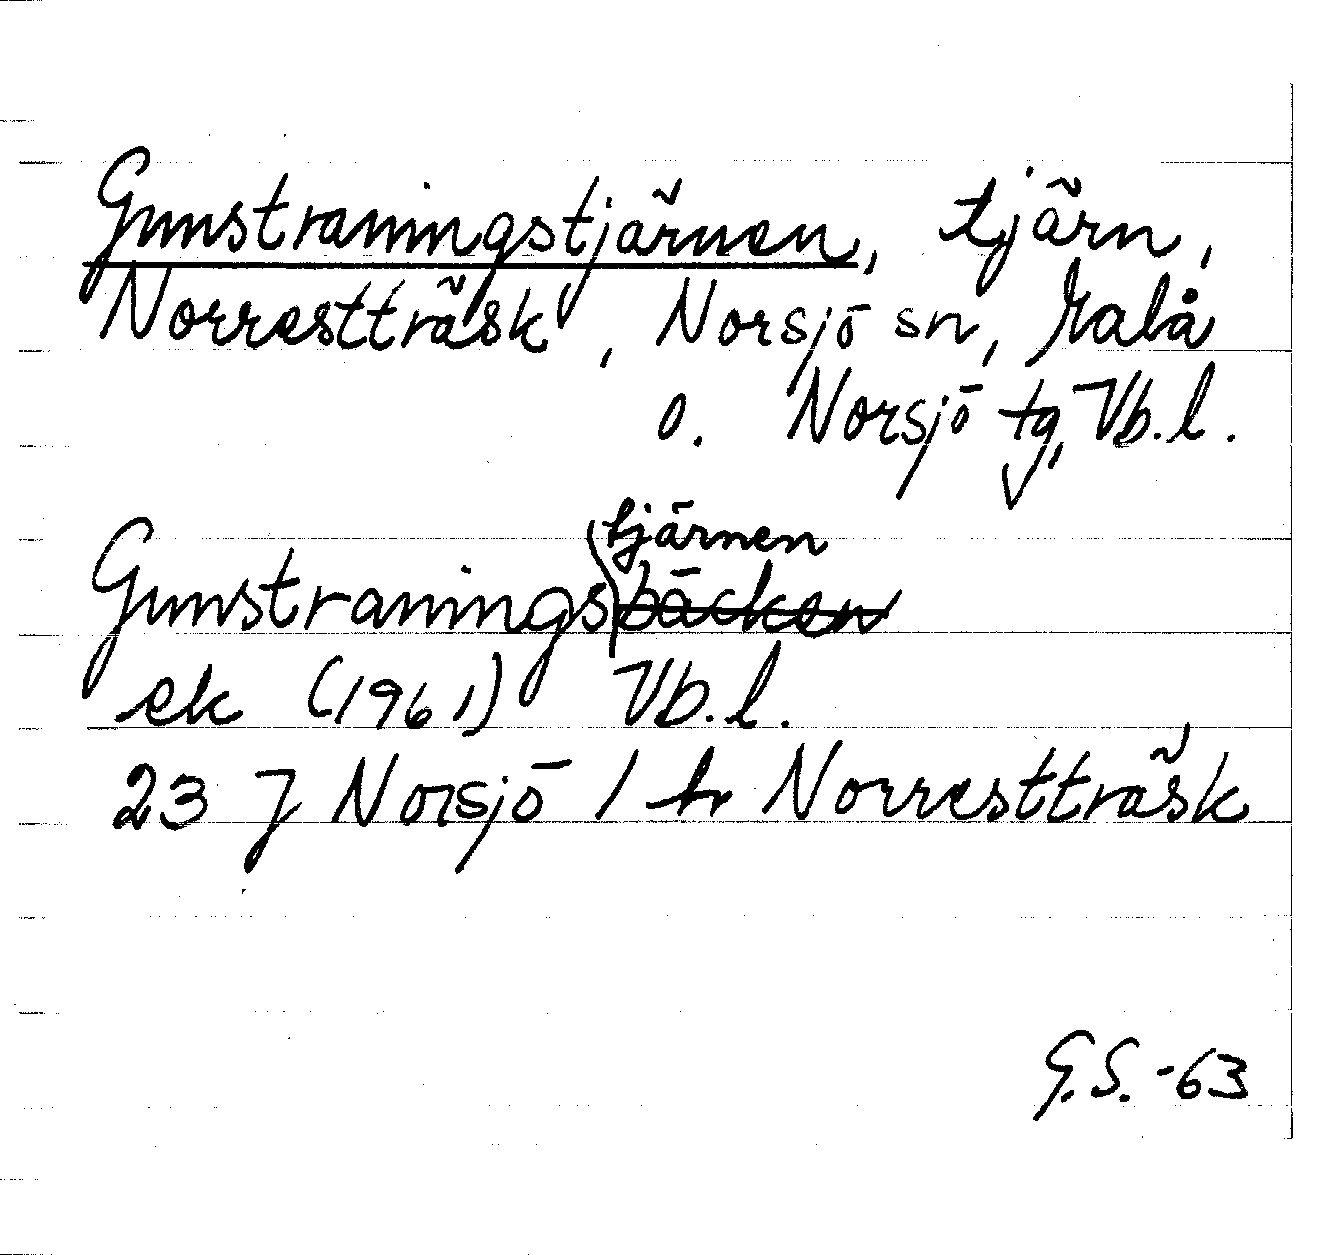 Gunstraningstjärnen, tjärn,
Norresttträsk, Norsjö sn, Malå
o. Norsjö tg, Vb.l.
tjärnen
Gunstraningsbäcken
ek (1961) Vb.l.
23 J Norsjö / tr Norresttträsk
G.S.-63